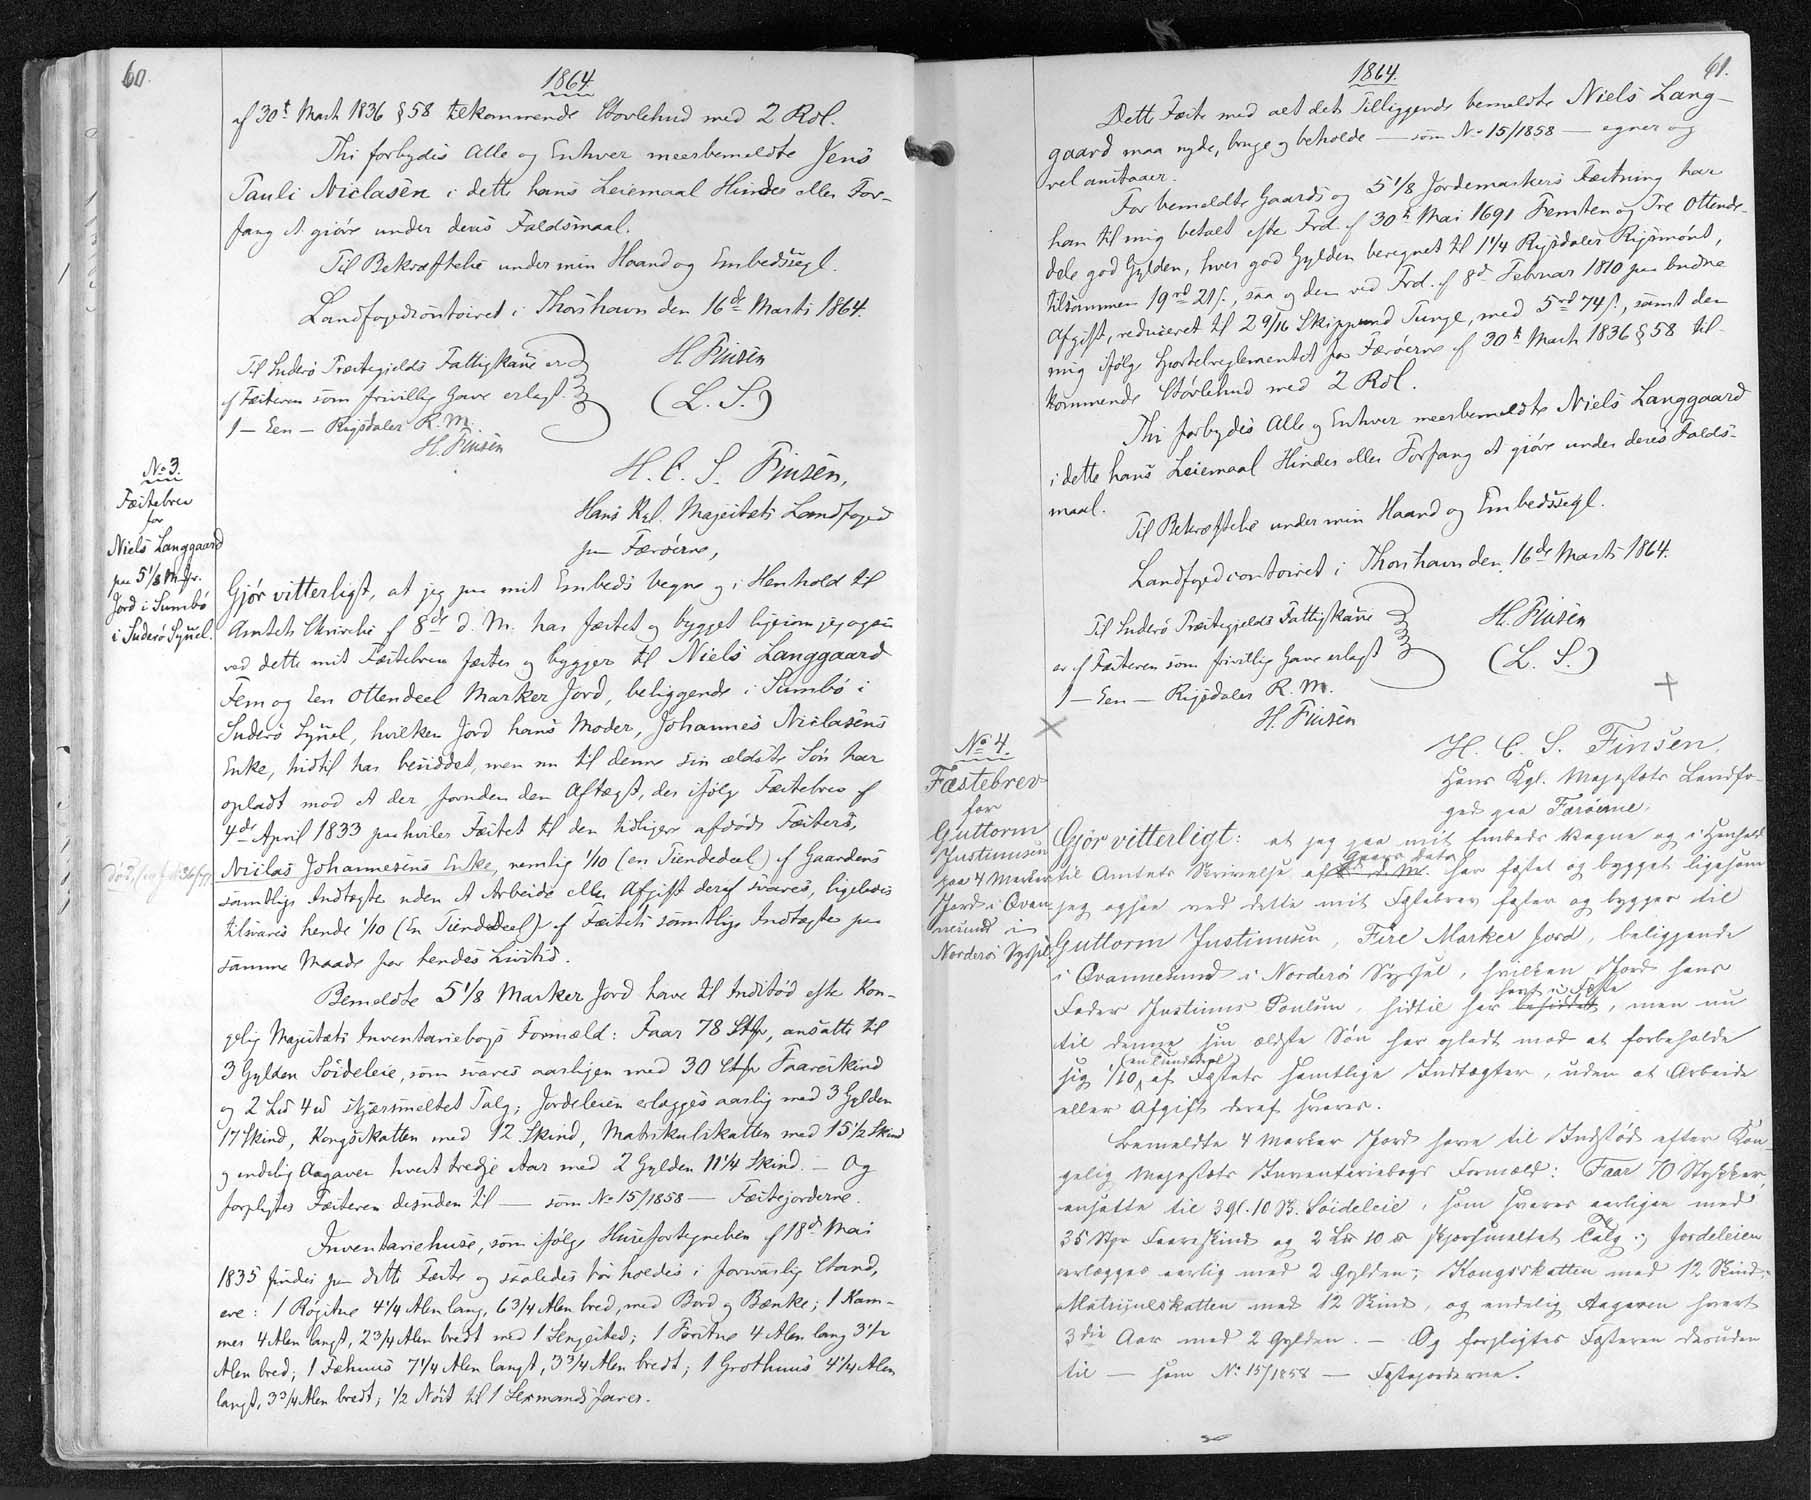 60.
1864.
af 30t Marts 1836 § 58 tilkommende Støvlehud med 2 Rdl.
Thi forbydes Alle og Enhver meerbemeldte Jens
Pauli Niclasen i dette hans Leiemaal Hinder eller For-
fang at gjöre under deres Faldsmaal.
Til Bekræftelse under min Haand og Embedssegl.
Landfogedcontoiret i Thorshavn den 16de Marts 1864.
Til Suderö Præstegjelds Fattigkasse er
af Fæsteren som frivillig Gave erlagt
1 — Een — Rigsdaler R. M.
H. Finsen
H. Finsen
(L. S.)
No 3.
Fæstebrev
for
Niels Langgaard
paa 5 1/8 Mrkr.
Jord i Sumbö
i Suderö Syssel.
H. C. S. Finsen,
Hans Kgl. Majestæts Landfoged
paa Færöerne,
Gjör vitterligt, at jeg paa mit Embeds Vegne og i Henhold til
Amtets Skrivelse af 8de d. M. har fæstet og bygget ligesom jeg ogsaa
ved dette mit Fæstebrev fæster og bygger til Niels Langgaard
Fem og Een Ottendeel Marker Jord, beliggende i Sumbö i
Suderö Syssel, hvilken Jord hans Moder, Johannes Niclasens
Enke, hidtil har besiddet, men nu til denne sin ældste Sön har
opladt mod at der foruden den Aftægt, der ifölge Fæstebrev af
4de April 1833 paahviler Fæstet til den tidligere afdöde Fæsters,
Niclas Johannesens Enke, nemlig 1/10 (en Tiendedeel) af Gaardens
samtlige Indtægter uden at Arbeide eller Afgift deraf svares, ligeledes
tilsvares hende 1/10 (En Tiendedeel) af Fæstets samtlige Indtægter paa
samme Maade for hendes Livstid.
Bemeldte 5 1/8 Marker Jord have til Indstöd efter Kon-
gelig Majestæts Inventariebogs Formæld: Faar 78 Stkr, ansatte til
3 Gylden Söideleie, som svares aarligen med 30 Stkr Faareskind
og 2 Lod 4 skjærsmeltet Talg; Jordeleien erlægges aarlig med 3 Gylden
17 Skind, Kongsskatten med 12 Skind, Matrikulskatten med 15 1/2 Skind
og endelig Aagaven hvert tredje Aar med 2 Gylden 11 1/4 Skind. — Og
forpligtes Fæsteren desuden til — som No 15/1858 — Fæstejorderne.
Inventariehuse, som ifölge Huusfortegnelsen af 18de Mai
1835 findes paa dette Fæste og saaledes bör holdes i forsvarlig Stand,
ere: 1 Rögstue 4 1/4 Alen lang, 6 3/4 Alen bred, med Bord og Bænke; 1 Kam-
mer 4 Alen langt, 2 3/4 Alen bredt med 1 Sengested; 1 Forstue 4 Alen lang 3 1/2
Alen bred; 1 Fæhuus 7 1/4 Alen langt, 3 3/4 Alen bredt; 1 Grothuus 4 1/4 Alen
langt, 3 3/4 Alen bredt; 1/2 Nöst til 1 Sexmandsfarer.
61.
1864.
Dette Fæste med alt det Tilliggende bemeldte Niels Lang-
gaard maa nyde, bruge og beholde — som No 15/1858 — egner og
vel anstaaer.
For bemeldte Gaards og 5 1/8 Jordemarkers Fæstning har
han til mig betalt efter Frd. af 30te Mai 1691 Femten og Tre Ottende-
dele god Gylden, hver god Gylden beregnet til 1 1/4 Rigsdaler Rigsmønt,
tilsammen 19rd 21s., saa og den ved Frd. af 8de Februar 1810 paabudne
Afgift, reduceret til 2 9/16 Skippund Tunge, med 5rd 74s., samt den
mig ifölge Sportelreglementet for Færöerne af 30te Marts 1836 § 58 til-
kommende Stövlehud med 2 Rdl.
Thi forbydes Alle og Enhver meerbemeldte Niels Langgaard
i dette hans Leiemaal Hinder eller Forfang at gjöre under deres Falds-
maal.
Til Bekræftelse under min Haand og Embedssegl.
Landfogedcontoiret i Thorshavn den 16de Marts 1864.
Til Suderö Præstegjelds Fattigkasse
er af Fæsteren som frivillig Gave erlagt
1 — Een — Rigsdaler R. M.
H. Finsen
H. Finsen
(L. S.)
No 4.
Fæstebrev
for
Guttorm
Justinusen
paa 4 Marker
Jord i Qvan-
nesund i
Norderö Syssel
H. C. S. Finsen,
Hans Kgl. Majestæts Landfo-
ged paa Færöerne,
Gjör vitterligt: at jeg paa mit Embeds Vegne og i Henhold
til Amtets Skrivelse af Gaars Dato har fæstet og bygget ligesom
jeg ogsaa ved dette mit Fæstebrev fæster og bygger til
Guttorm Justinusen, Fire Marker Jord, beliggende
i Qvannesund i Norderö Syssel, hvilken Jord hans
Fader Justinus Poulsen, hidtil har havt i Fæste besiddet, men nu
til denne sin ældste Sön har opladt mod at forbeholde
sig 1/10 (en Tiendedeel) af Fæstets samtlige Indtægter, uden at Arbeide
eller Afgift deraf svares.
Bemeldte 4 Marker Jord have til Indstöd efter Kon-
gelig Majestæts Inventariebogs Formæld: Faar 70 Stykker,
ansatte til 3 Gl. 10 Sk. Söideleie, som svares aarligen med
35 Stkr Faareskind og 2 Lod 10 skjærsmeltet Talg; Jordeleien
erlægges aarlig med 2 Gylden; Kongsskatten med 12 Skind;
Matrikulskatten med 12 Skind, og endelig Aagaven hvert
3die Aar med 2 Gylden. — Og forpligtes Fæsteren desuden
til — som No 15/1858 — Fæstejorderne.